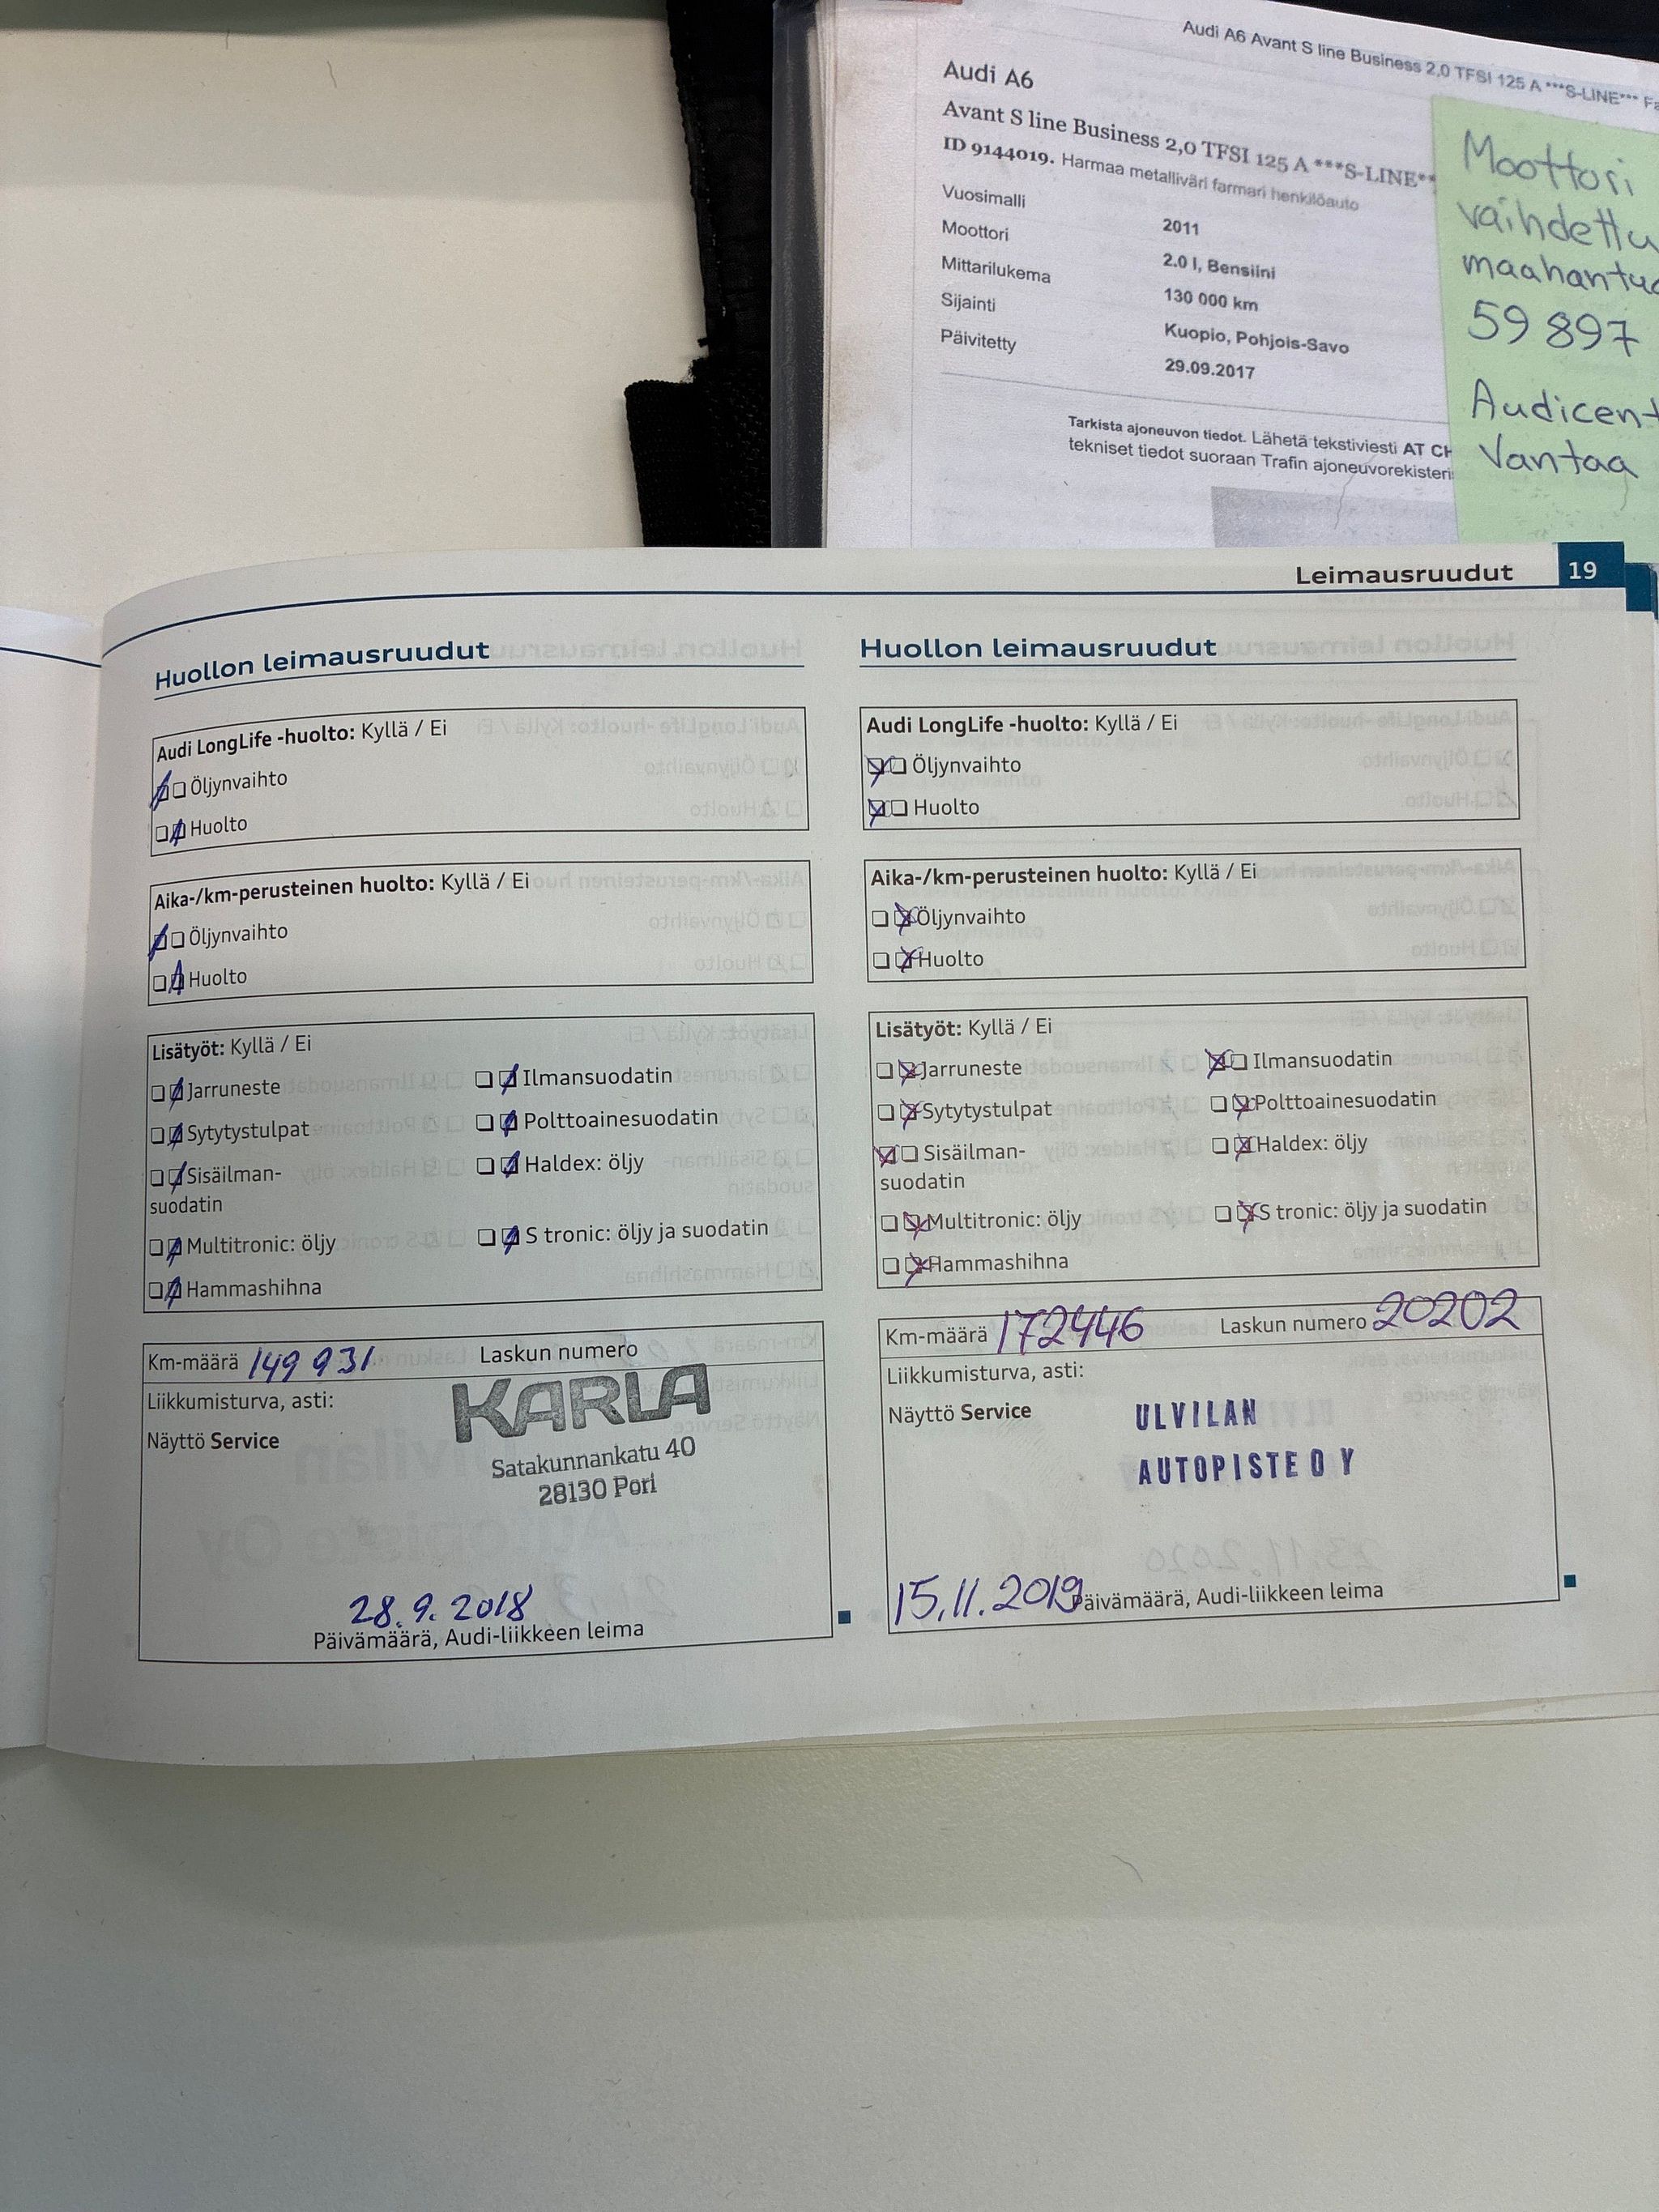 Audi A6 Avant S line Business 2,0 TFSI 125 A ***S-LINE***
Audi A6
Avant S line Business 2,0 TFSI 125 A ***S-LINE**
ID 9144019. Harmaa metalliväri farmari henkilöauto
Vuosimalli 2011
Moottori 2.0 l, Bensiini
Mittarilukema 130 000 km
Sijainti Kuopio, Pohjois-Savo
Päivitetty 29.09.2017
Tarkista ajoneuvon tiedot. Lähetä tekstiviesti AT
tekniset tiedot suoraan Trafin ajoneuvorekisteri
Moottori
vaihdettu
maahantuo
59 897
Audicent
Vantaa
Leimausruudut 19
Huollon leimausruudut
Audi LongLife -huolto: Kyllä / Ei
Öljynvaihto
Huolto
Aika-/km-perusteinen huolto: Kyllä / Ei
Öljynvaihto
Huolto
Lisätyöt: Kyllä / Ei
Jarruneste Ilmansuodatin
Sytytystulpat Polttoainesuodatin
Sisäilman- Haldex: öljy
suodatin
Multitronic: öljy S tronic: öljy ja suodatin
Hammashihna
Km-määrä 149 931 Laskun numero
Liikkumisturva, asti:
Näyttö Service
KARLA
Satakunnankatu 40
28130 Pori
28.9.2018
Päivämäärä, Audi-liikkeen leima
Huollon leimausruudut
Audi LongLife -huolto: Kyllä / Ei
Öljynvaihto
Huolto
Aika-/km-perusteinen huolto: Kyllä / Ei
Öljynvaihto
Huolto
Lisätyöt: Kyllä / Ei
Jarruneste Ilmansuodatin
Sytytystulpat Polttoainesuodatin
Sisäilman- Haldex: öljy
suodatin
Multitronic: öljy S tronic: öljy ja suodatin
Hammashihna
Km-määrä 172446 Laskun numero 20202
Liikkumisturva, asti:
Näyttö Service
ULVILAN
AUTOPISTE OY
15.11.2019 Päivämäärä, Audi-liikkeen leima